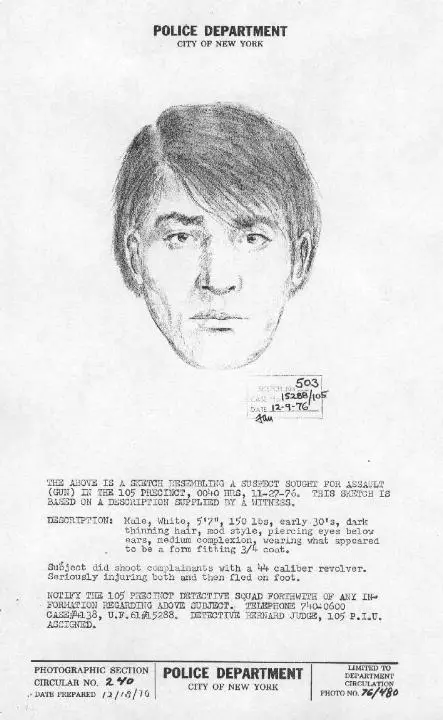 POLICE DEPARTMENT
CITY OF NEW YORK
SKETCH NO. 503
CASE NO. 15288/105
DATE 12-9-76
THE ABOVE IS A SKETCH RESEMBLING A SUSPECT SOUGHT FOR ASSAULT
(GUN) IN THE 105 PRECINCT, 0040 HRS, 11-27-76. THIS SKETCH IS
BASED ON A DESCRIPTION SUPPLIED BY A WITNESS.
DESCRIPTION: Male, White, 5'7", 150 lbs, early 30's, dark
thinning hair, mod style, piercing eyes below
ears, medium complexion, wearing what appeared
to be a form fitting 3/4 coat.
Subject did shoot complainants with a 44 caliber revolver.
Seriously injuring both and then fled on foot.
NOTIFY THE 105 PRECINCT DETECTIVE SQUAD FORTHWITH OF ANY IN-
FORMATION REGARDING ABOVE SUBJECT. TELEPHONE 740-0600
CASE#4138, U.F.61#15288. DETECTIVE BERNARD JUDGE, 105 P.I.U.
ASSIGNED.
PHOTOGRAPHIC SECTION
CIRCULAR NO. 240
DATE PREPARED 12/18/76
POLICE DEPARTMENT
CITY OF NEW YORK
LIMITED TO
DEPARTMENT
CIRCULATION
PHOTO NO. 76/480